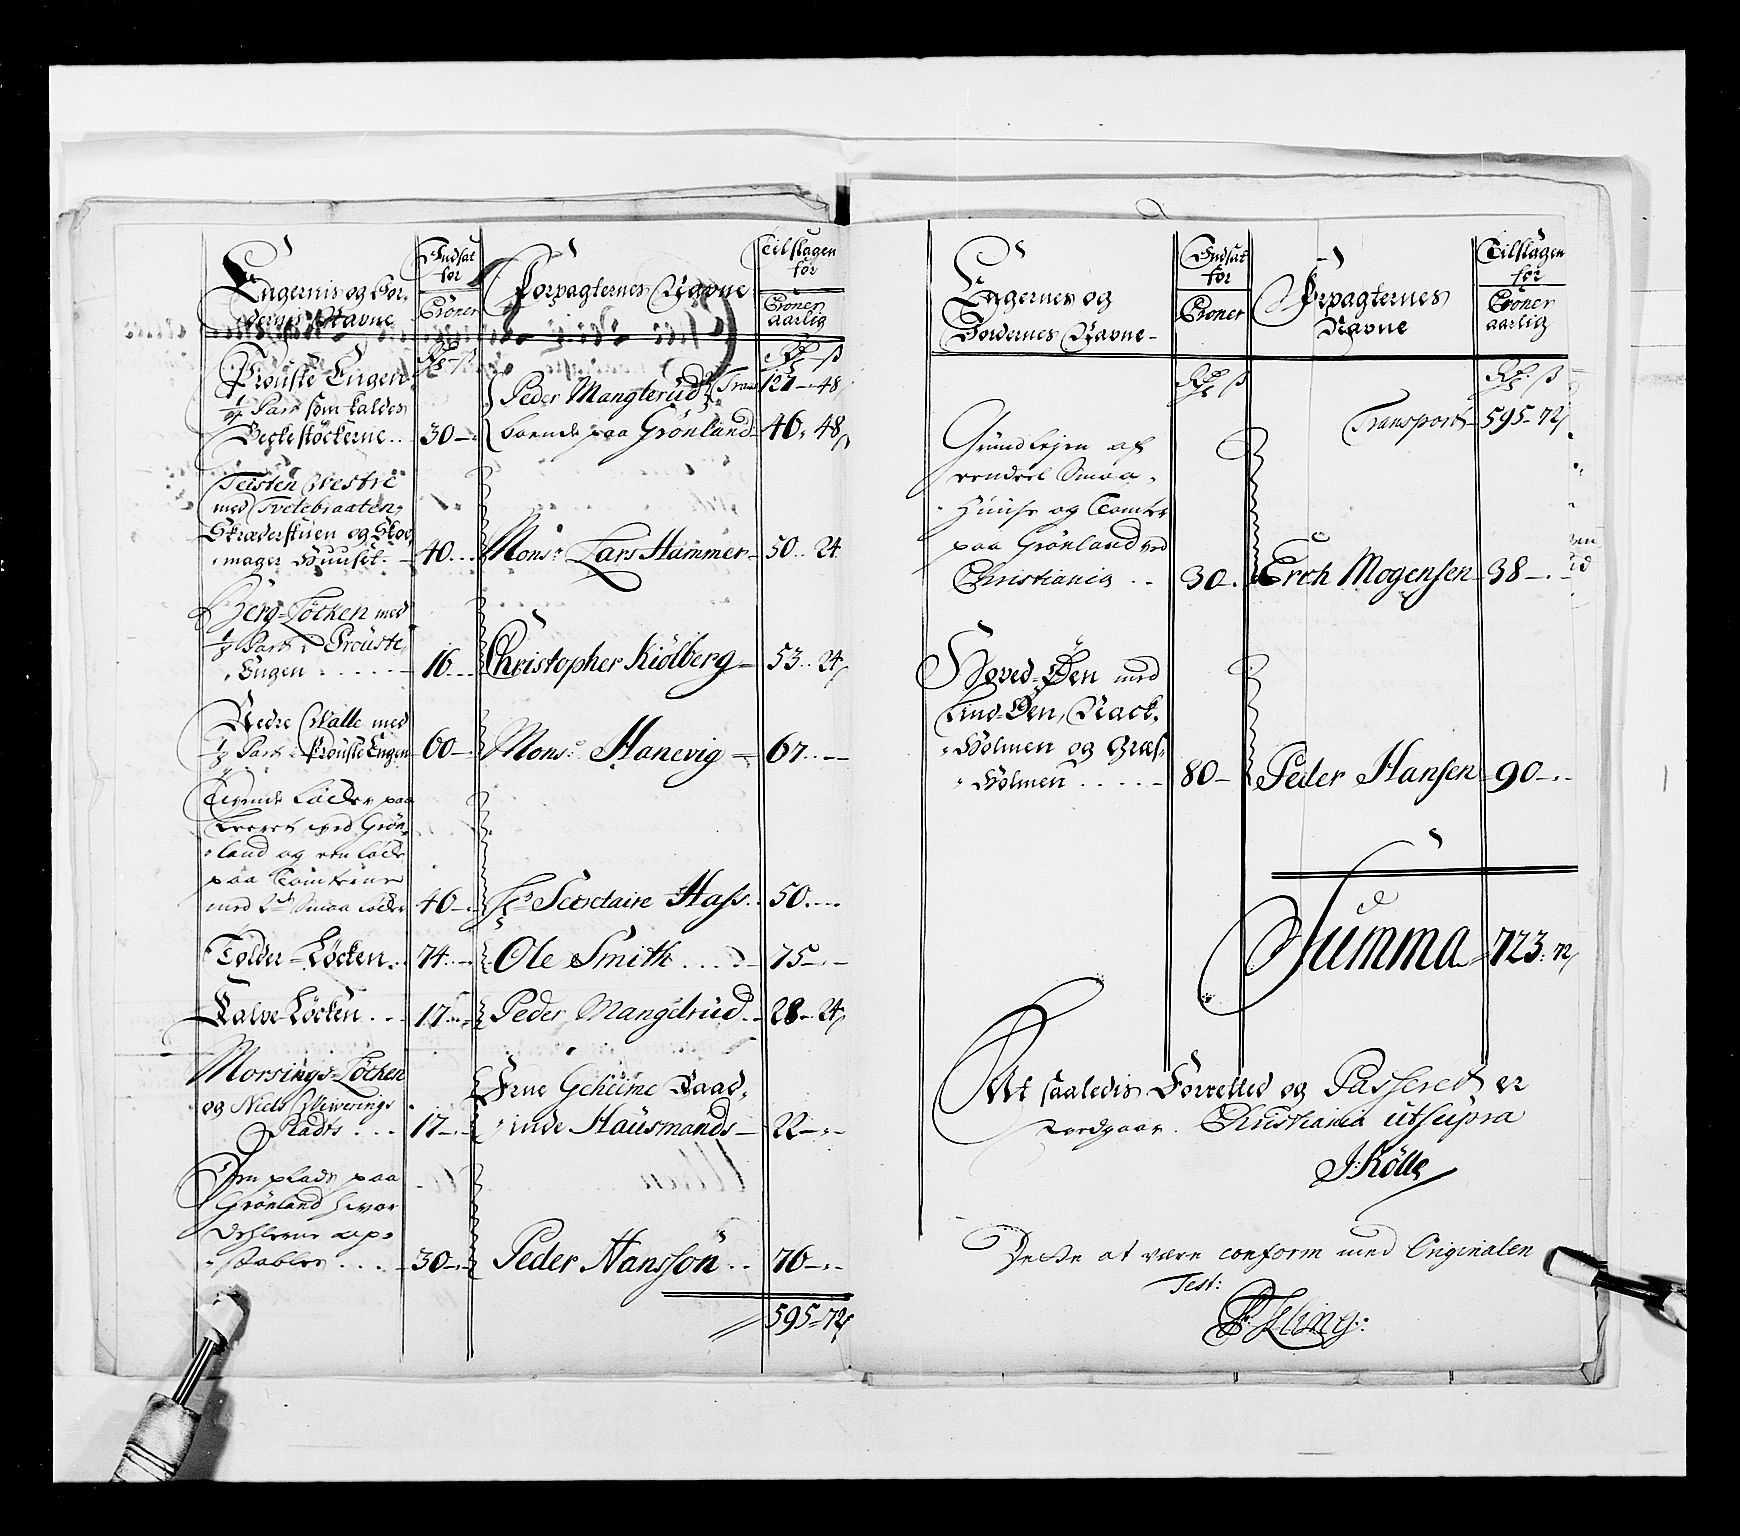 Engernis og Jor-
dernes Navne
Indsat
for
Croner
Forpagternes Navne
Tilslagen
for
Croner
aarlig
Rdr ß
Rdr ß
Prouste Engen
Part som kaldes
Begkestøckerne .. 30
Peder Manglerud Trans 121 - 48
boende paa Grønland 46 - 48
Teisten Westre
med Tvetebraaten,
Skræderstuen og Skoe,
mager Huuset. 40
Mons.r Lars Hammer 50 .. 24
Berg-Løcken med
½ Part i Prouste
Engen 16
Christopher Kiølberg 53 .. 24
Nedre Walle med
½ Part i Prouste Engen 60
Mons.r Hanevig 67
Løcker paa
ved Grøn-
land og een Løcke
paa Tomterne
med 2de Smaa Løcker 46
Hr Secretaire Hass 50
Tolder-Løcken 74
Ole Smith 75
Kalve-Løcken 17
Peder Mangelrud 28 - 24
Morsings-Løcken
og Niels Meverings
Plads 17
Frue Geheime Raad-
inde Hausmands 22
Een plads paa
Grønland hvor
Dehlerne op-
stables 30
Peder Hansson 76
595 - 72
Engernes og
Jordernes Navne
Indsat
for
Croner
Forpagternes
Navne
Tilslagen
for
Croner
aarlig
Rdr ß
Rdr ß
Transport 595 - 72
Grundlejen af
eendeel Smaa-
Huuse og Tomter
paa Grønland ved
Christiania 30
Erch Mogensen 38
Hoved-Øen med
Lind-Øen, Nack-
Holmen og Græs-
Holmen 80
Peder Hansen 90
Summa 723 : 72
At saaledis Forretted og Passeret er
Christiania ut supra
J: Kølle
Dette at være conform med Originalen
Test:
Eling: